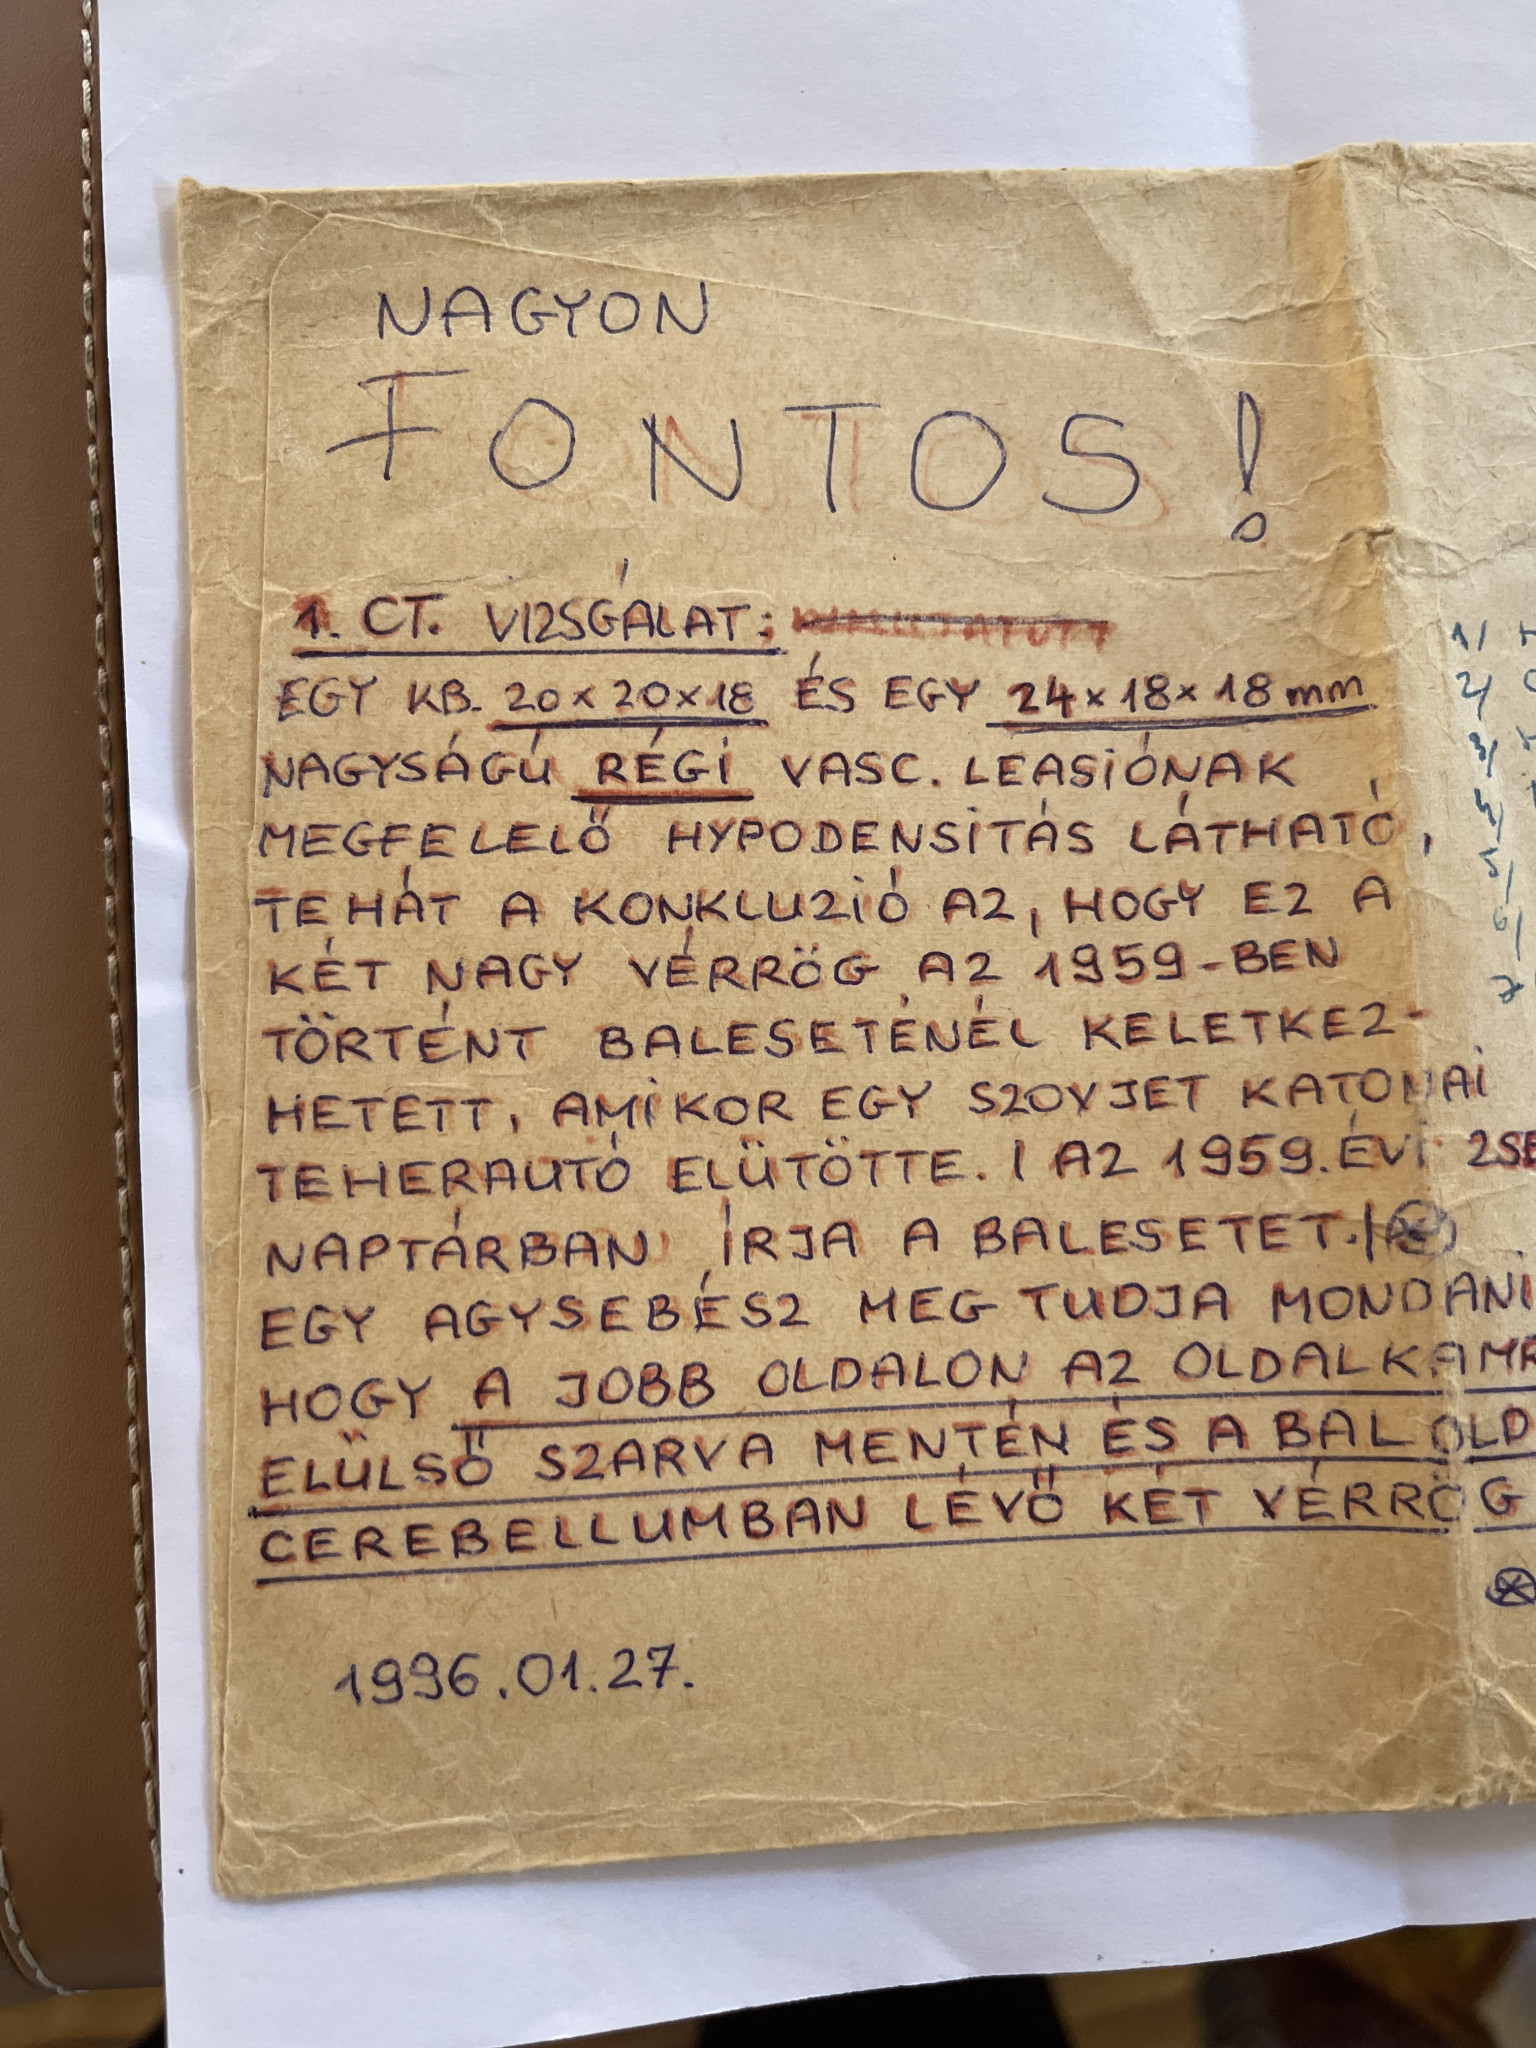 NAGYON
FONTOS!
1. CT. VIZSGÁLAT:
EGY KB. 20x20x18 ÉS EGY 24x18x18 mm
NAGYSÁGÚ RÉGI VASC. LEASIÓNAK
MEGFELELŐ HYPODENSITÁS LÁTHATÓ,
TEHÁT A KONKLUZIÓ AZ, HOGY EZ A
KÉT NAGY VÉRRÖG AZ 1959-BEN
TÖRTÉNT BALESETÉNÉL KELETKEZ-
HETETT, AMIKOR EGY SZOVJET KATONAI
TEHERAUTÓ ELÜTÖTTE. / AZ 1959. ÉVI ZSE
NAPTÁRBAN ÍRJA A BALESETET./
EGY AGYSEBÉSZ MEG TUDJA MONDANI
HOGY A JOBB OLDALON AZ OLDALKAMR
ELÜLSŐ SZARVA MENTÉN ÉS A BAL OLD
CEREBELLUMBAN LÉVŐ KÉT VÉRRÖG
1996.01.27.
1/
2/
3/
4/
5/
6/
7